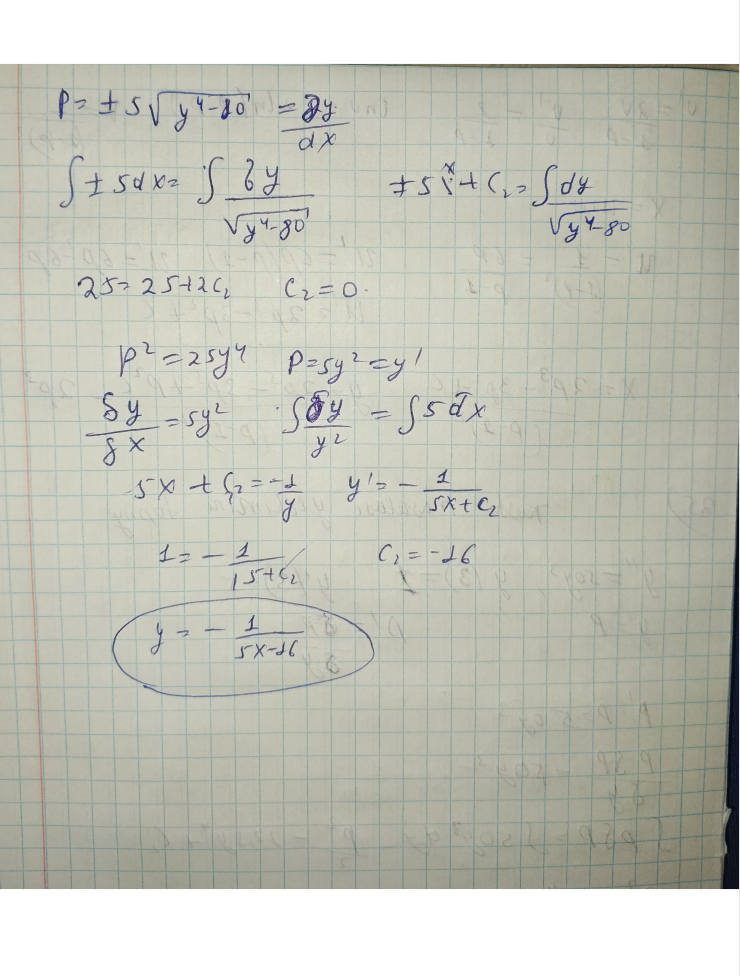 P = ±5√(y⁴-80) = dy/dx
∫±5dx = ∫ dy/√(y⁴-80) ±5x + C₂ = ∫ dy/√(y⁴-80)
25 = 25+2C₂ C₂ = 0.
P² = 25y⁴ P = 5y² = y'
δy/δx = 5y² ∫ δy/y² = ∫5dx
5x + C₂ = -1/y y' = - 1/(5x+C₂)
1 = - 1/(15+C₂) C₂ = -16
y = - 1/(5x-16)